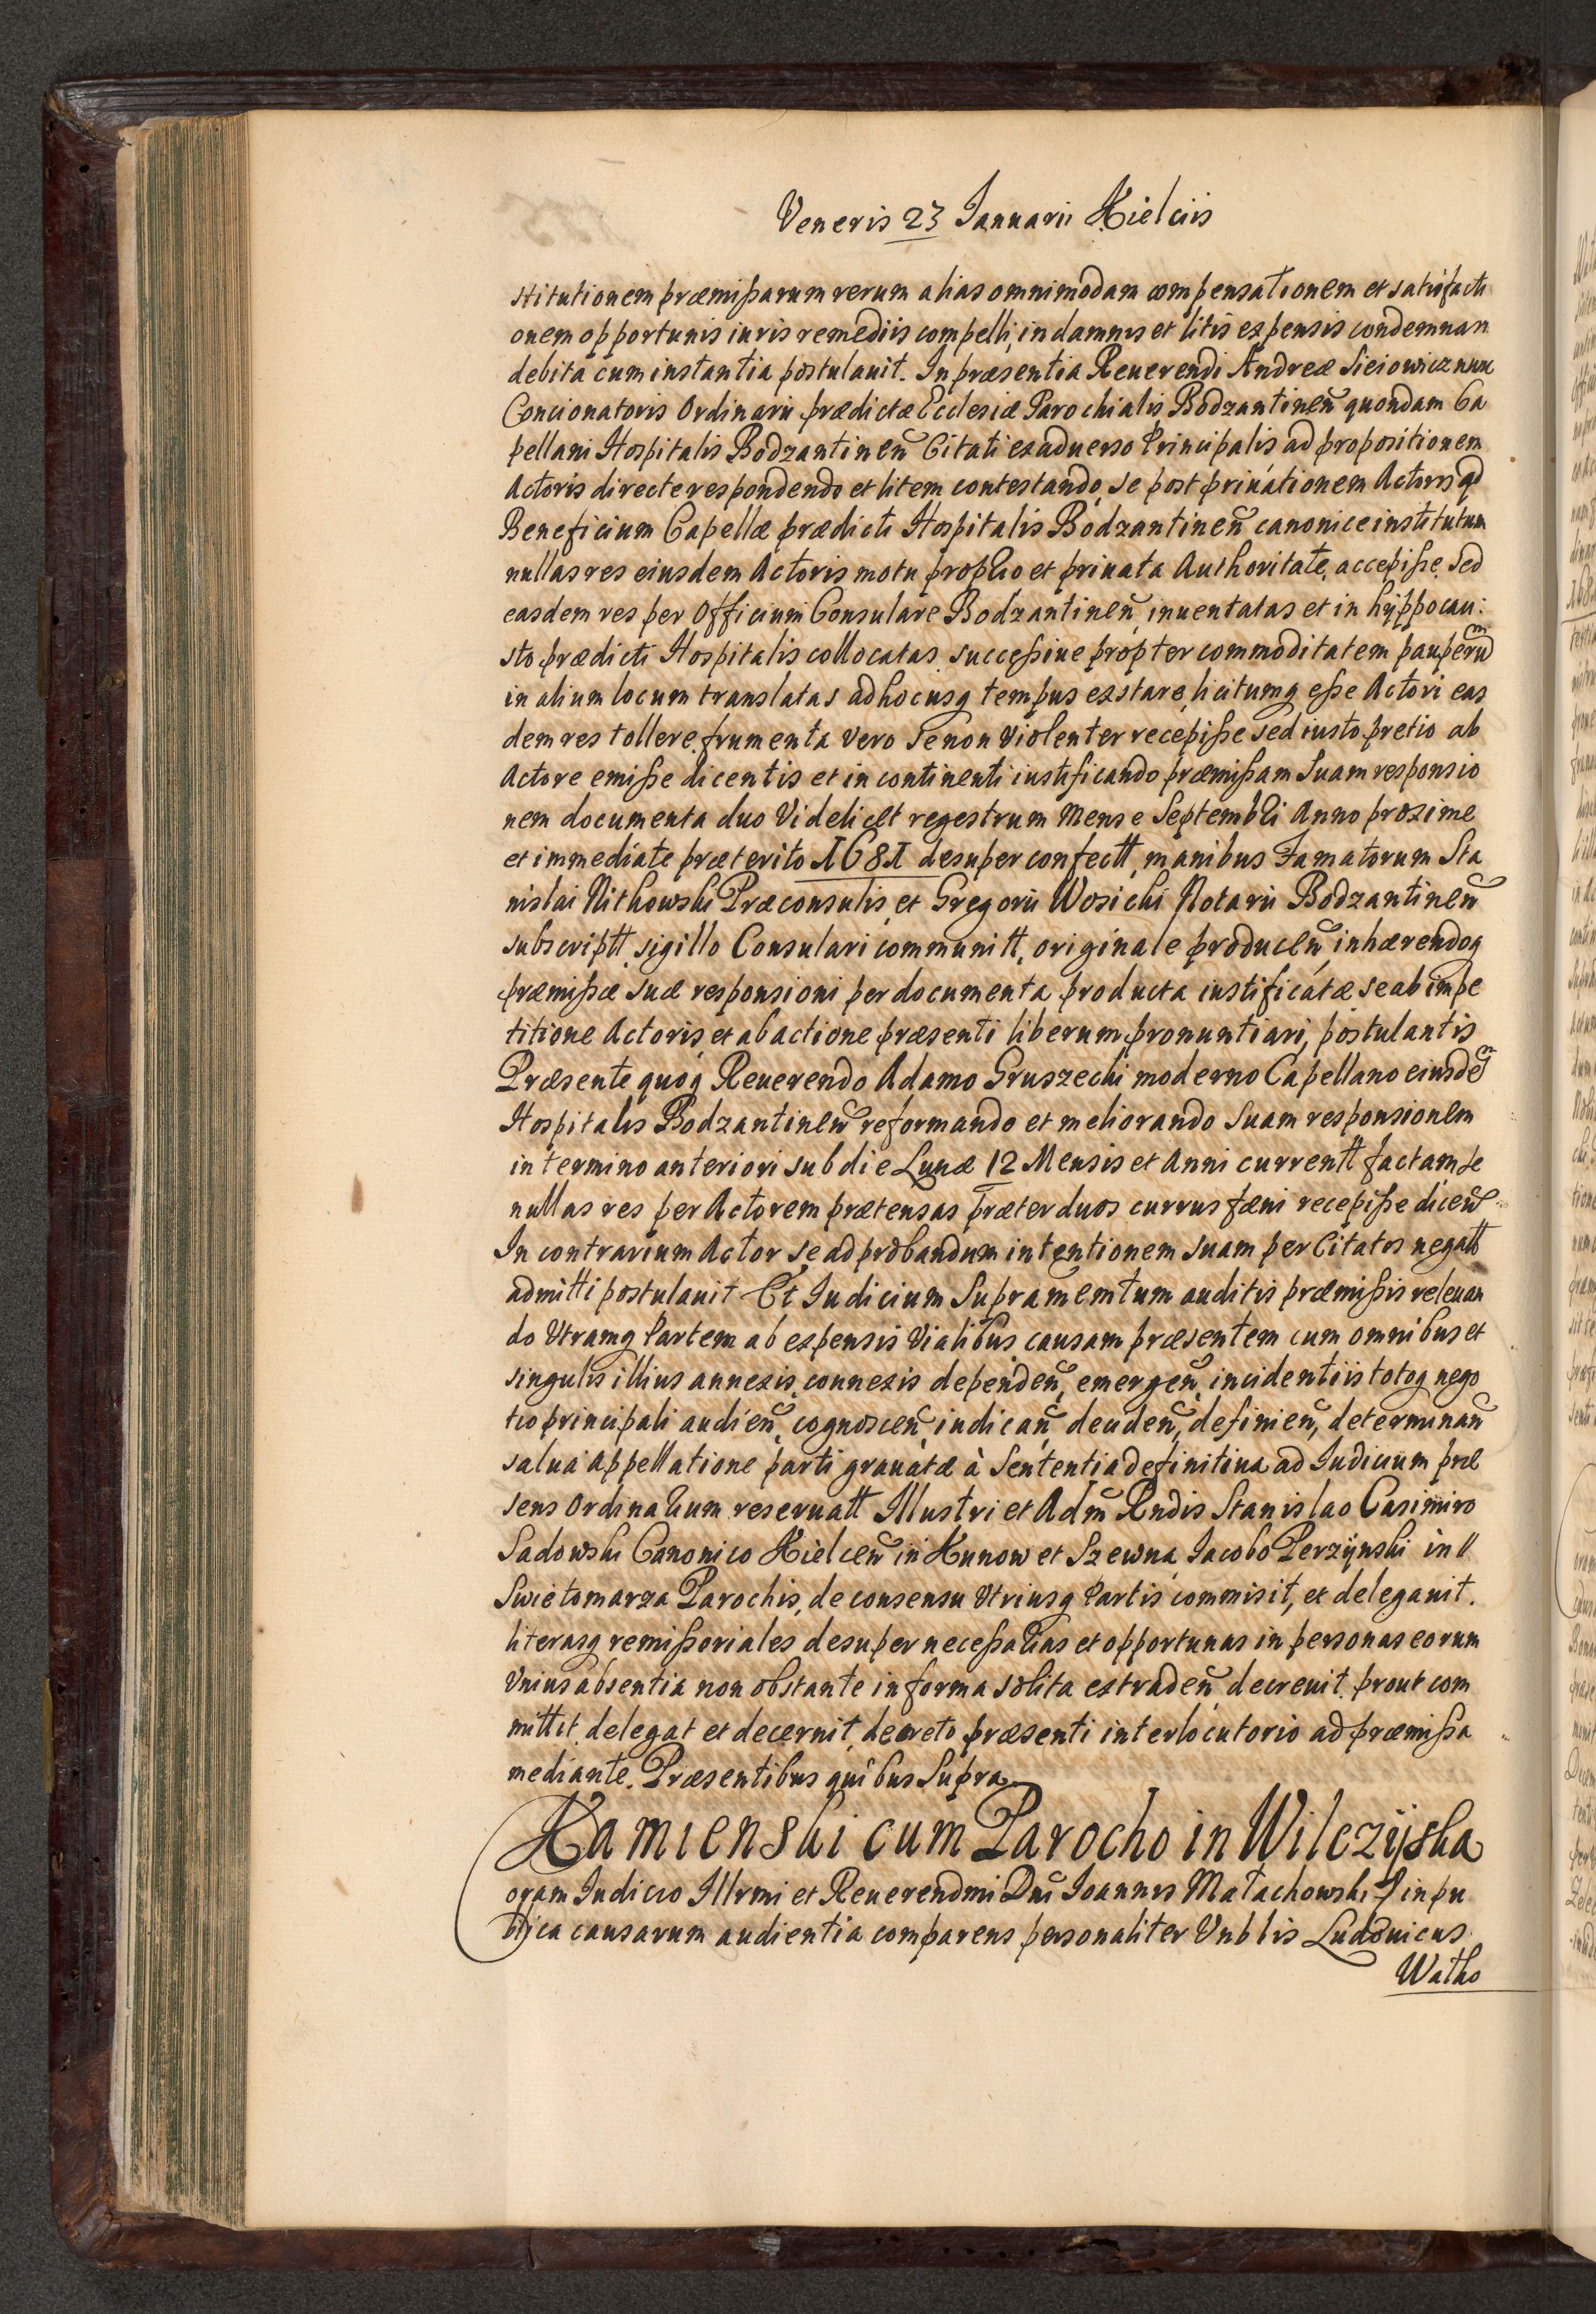 Veneris 23 Januarii Kielciis
stitutionem præmißarum rerum alias omnimodam compensationem et satisfacti
onem opportunis iuris remediis compelli, in damnis et litis expensis condemnari
debita cum instantia postulauit. In præsentia Reuerendi Andreæ Sieiowicz nunc
Concionatoris Ordinarii prædictæ Ecclesiæ Parochialis Bodzantinen̄ quondam Ca
pellani Hospitalis Bodzantinen̄ Citati ex aduerso Principalis ad propositionem
Actoris directe respondendo et litem contestando, se post priuationem Actoris qd
Beneficium Capellæ prædicti Hospitalis Bodzantinen̄ canonice institutum
nullas res eiusdem Actoris motu proprio et priuata Authoritate, accepiße. Sed
easdem res per Officium Consulare Bodzantinen̄ inuentatas et in hÿppocau:
sto prædicti Hospitalis collocatas successiue propter commoditatem pauperum
in alium locum translatas ad hocusq tempus exstare, licitumq eße Actori eas
dem res tollere, frumenta vero se non Violenter recepiße sed iusto pretio ab
Actore emiße dicentis et in continenti iustificando præmißam Suam responsio
nem documenta duo Videlicet regestrum Mense Septembri Anno proxime
et immediate præterito 1681 desuper confectt, manibus Famatorum Sta
nislai Nitkowski Præconsulis et Gregorii Wosicki Notarii Bodzantinen̄
subscriptt sigillo Consulari communitt, originale producen̄ inhærendoq
præmißæ suæ responsioni per documenta producta iustificatæ se ab impe
titione Actoris, et ab actione præsenti liberum pronuntiari, postulantis
Præsente quoq Reuerendo Adamo Gruszecki moderno Capellano eiusdem
Hospitalis Bodzantinen̄ reformando et meliorando Suam responsionem
in termino anteriori sub die Lunæ 12 Mensis et Anni currentt factam se
nullas res per Actorem prætensas præter duos currus fæni recepiße dicen̄
In contrarium Actor se ad probandum intentionem suam per Citatos negatt
admitti postulauit Et Iudicium Supramemtum auditis præmißis releuan
do Vtramq Partem ab expensis Vialibus causam præsentem cum omnibus et
singulis illius annexis connexis dependen̄, emergen̄, incidentiis totoq nego
tio principali audien̄, cognoscen̄, iudican̄, deciden̄, definien̄, determinan̄
salua Appellatione parti grauatæ à Sententia definitiua ad Iudicium præ
sens Ordinarium reseruatt Illustri et Adm̄ Rndis Stanislao Casimiro
Sadowski Canonico Kielcen̄ in Kunow et Szewna, Iacobo Perzÿnski in //
Swietomarza Parochis, de consensu Vtriusq Partis commisit, et delegauit.
literasq remißoriales desuper neceßarias et opportunas in personas eorum
Vnius absentia non obstante in forma solita extraden̄ decreuit. prout com
mittit delegat et decernit decreto præsenti interlocutorio ad præmißa
mediante. Præsentibus quibus Supra
Kamienski cum Parocho in Wilczÿska
Coram Iudicio Illrmi et Reuerendmi Dn̄i Ioannis Małachowski in pu
blica causarum audientia comparens personaliter Vnblis Ludouicus
Watko